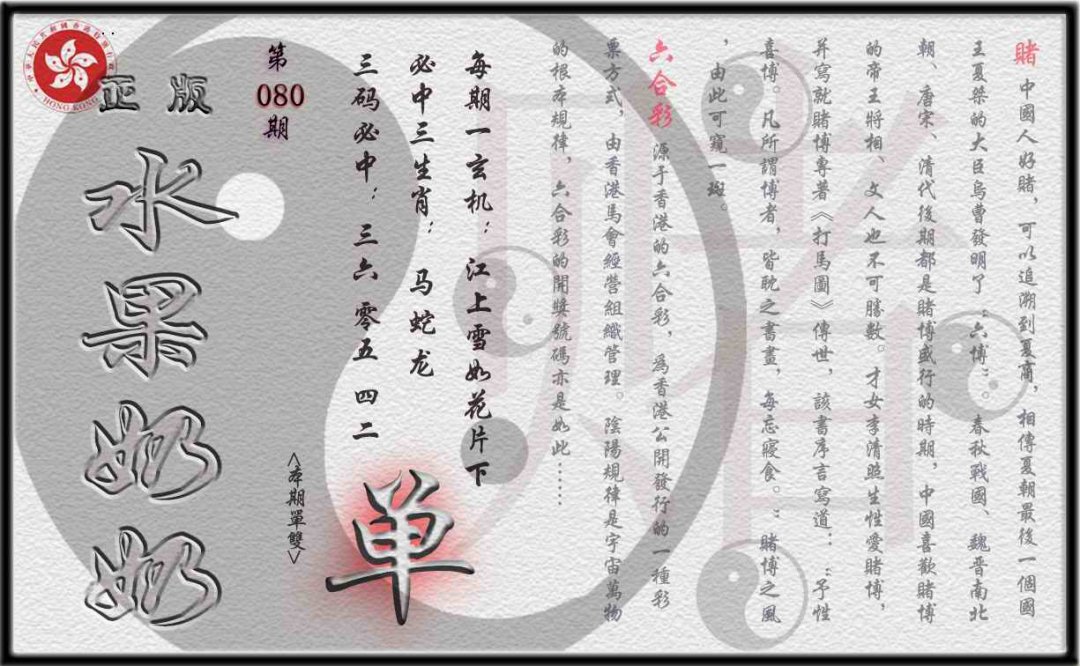 賭 中國人好賭，可以追溯到夏商，相傳夏朝最後一個國
王夏桀的大臣烏曹發明了“六博”。春秋戰國、魏晉南北
朝、唐宋、清代後期都是賭博盛行的時期，中國喜歡賭博
的帝王將相、文人也不可勝數。才女李清照生性愛賭博，
并寫就賭博專著《打馬圖》傳世，該書序言寫道：“予性
喜博。凡所謂博者，皆耽之書畫，每忘寢食。”賭博之風
，由此可窺一斑。
六合彩 源于香港的六合彩，為香港公開發行的一種彩
票方式，由香港馬會經營組織管理。陰陽規律是宇宙萬物
的根本規律，六合彩的開獎號碼亦是如此……
每期一玄机：江上雪如花片下
必中三生肖：马蛇龙
三码必中：三六 零五 四二
单
<本期單雙>
第
080
期
正版
水果奶奶
HONG KONG